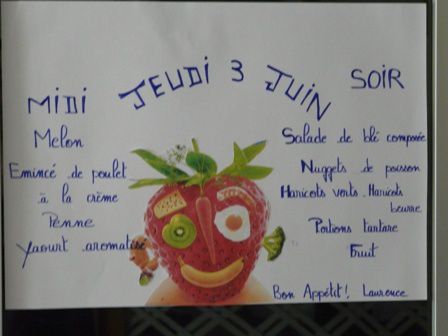 JEUDI 3 JUIN
MIDI
Melon
Emincé de poulet
à la crème
Penne
Yaourt aromatisé
SOIR
Salade de blé composée
Nuggets de poisson
Haricots verts. Haricots
beurre
Portions tartare
Fruit
Bon Appétit! Laurence